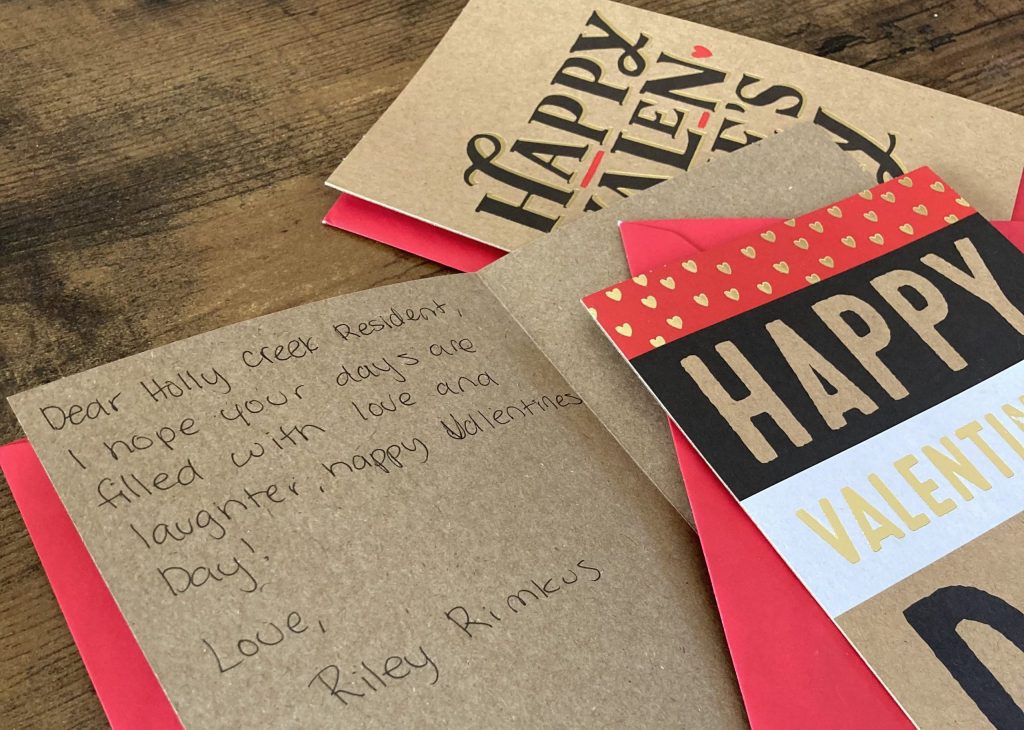 HAPPY
VALEN
E'S
Dear Holly Creek Resident,
I hope your days are
filled with love and
laughter, happy Vallentines
Day!
Love,
Riley Rimkus
HAPPY
VALENTIN
D